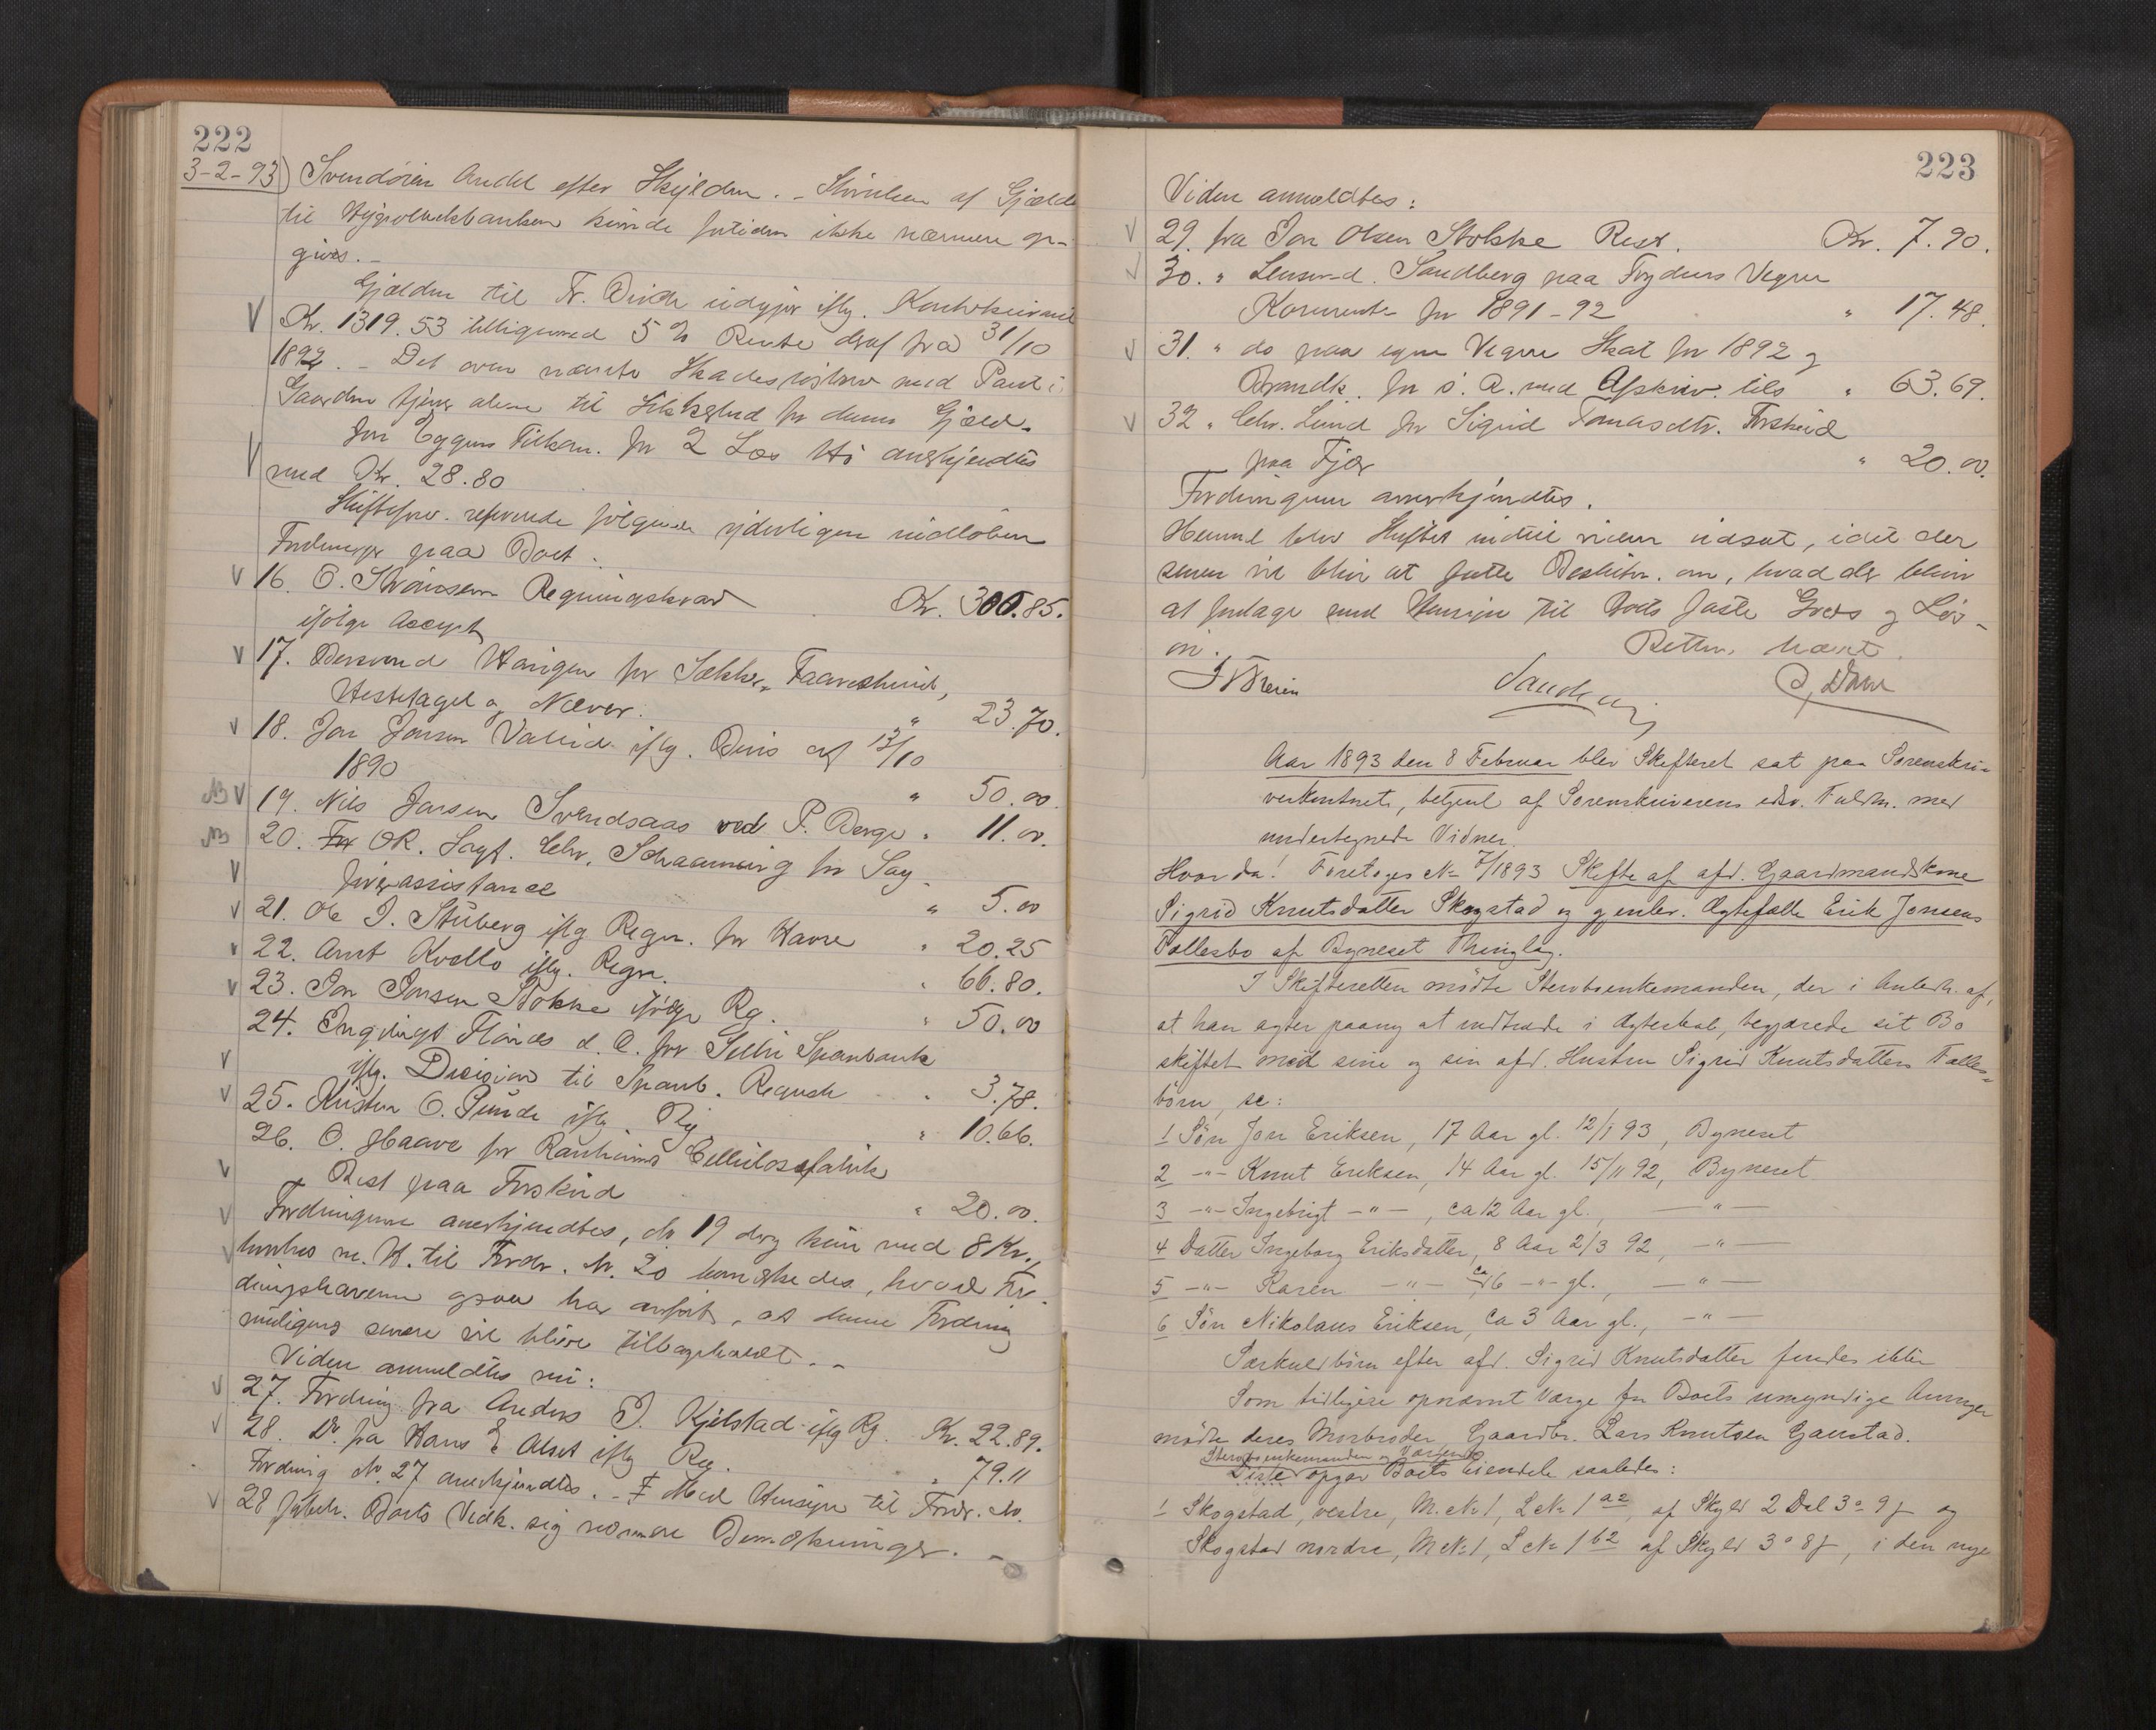 222
3-2-93) Svendörin Andel efter Skylden. - Störrelsen af Gjælden
til Hypothekbanken kunde fortiden ikke nærmere op-
gives. -
Gjælden til Fr. Birch udgjør iflg.
Kr. 1319.53 tilligemed 5 % Rente deraf fra 31/10
1892. - Det oven nævnte Skadeslösbrev med Pant i
Gaarden tjener alene til Sikkerhed for denne Gjæld.
Jon Eggens Tilkom. for 2 Læs Hö anerkjendtes
med Kr. 28.80
Skifteforv. refererede fölgende yderligere indlöbne
Fordringer paa Boet:
16. O. Regningskrav
ifölge Accept Kr. 300.85.
17. Berevend Haugen for Sække, Faareskind,
Hestetagel og Næver. " 23.70.
18. Jon Jonsen iflg. Bevis af 13/10
1890 " 50.00
19. Nils Jonsen Svendsaas ved P. Berge " 11.00.
20. OR. Sagf. Chr. Schaanning for Sag-
förerassistance " 5.00
21. Ole J. Stuberg iflg Regn. for Havre " 20.25
22. Arnt Kvello iflg. Regn. " 66.80.
23. Jon Jonsen Stokke ifölge Rg. " 50.00
24. Ingebrigt d. A. for Selbu Sparebank
iflg. Decision til Spareb. Regnsk " 3.78.
25. Kristen O. Sunde iflg. Rg " 10.66.
26. O. Haave for Ranheims Cellulosefabrik
Rest paa Forskud " 20.00.
Fordringerne anerkjendtes, No 19 dog kun med 8 Kr.,
hvorhos m. H. til Fordr. No. 20 bemærkedes, hvad For-
dringshaveren ogsaa har anfört, at denne Fordring
muligens senere vil blive tilbagekaldt. -
Viden anmeldtes nu:
27. Fordring fra Anders J. Kjelstad iflg Rg. Kr. 22.89.
28. Do fra Hans E Alset iflg Reg. " 79.11
Fordring No. 27 anerkjendtes. - Med Hensyn til Fordr. No.
28 forbeh. Boets Vedk. sig nærmere Bemærkninger. -
223
Viden anmeldtes:
29. fra Jon Olsen Stokke Rest. Kr. 7.90.
30. " Lensmd. Sandberg paa Fogdens Vegne
Kornrente for 1891-92 " 17.48.
31. " do paa egne Vegne Skat for 1892 og
Brandk. for s. A. med Afskriv. tils " 63.69.
32 " Chr. Lund for Sigrid Tomasdtr. Forskud
paa Fjær " 20.00.
Fordringerne anerkjendtes.
Hermed blev Skiftet indtil viden udsat, idet der
senere vil blive at fatte Beslutn. om, hvad der bliver
at foretage med Hensyn til Boets faste Gods og Lös-
öre. Retten hævet.
Sandberg
Aar 1893 den 8 Februar blev Skifteret sat paa Sorenskri-
verkontoret, betjent af Sorenskriverens edsv. Fuldm. med
undertegnede Vidner.
Hvorda! Foretoges No 7/1893 Skifte af afd. Gaardmandskone
Sigrid Knutsdatter Skogstad og gjenlev. Ægtefælle Erik Jonsens
Fællesbo af Byneset Thinglag.
I Skifteretten mödte Stervboenkemanden, der i Anledn. af,
at han agter paany at indtræde i Ægteskab, begjærede sit Bo
skiftet med sine og sin afd. Hustru Sigrid Knutsdatters Fælles-
börn, se:
1 Sön Jon Eriksen, 17 Aar gl. 12/1 93, Byneset
2 -"- Knut Eriksen, 14 Aar gl. 15/11 92, Byneset
3 -"- Ingebrigt -"-, ca 12 Aar gl., -"-
4 Datter Ingeborg Eriksdatter, 8 Aar 2/3 92, -"-
5 -"- Karen -"- ca 6 -"- gl., -"-
6 Sön Nikolaus Eriksen, ca 3 Aar gl., -"-
Særkuldbörn efter afd. Sigrid Knutsdatter findes ikke
Som tidligere opnævnt Værge for Boets umyndige Arvinger
mödte deres Morbroder Gaardbr. Lars Knutsen Gaustad.
Stervboenkemanden og Værgen
Disse opgav Boets Eiendele saaledes:
1 Skogstad, vestre, M. No 1, L No 1 a2, af Skyld 2 Dal 3 o 9 f og
Skogstad nordre, M No 1, L No 1 b2 af Skyld 3 o 8 f, i den nye